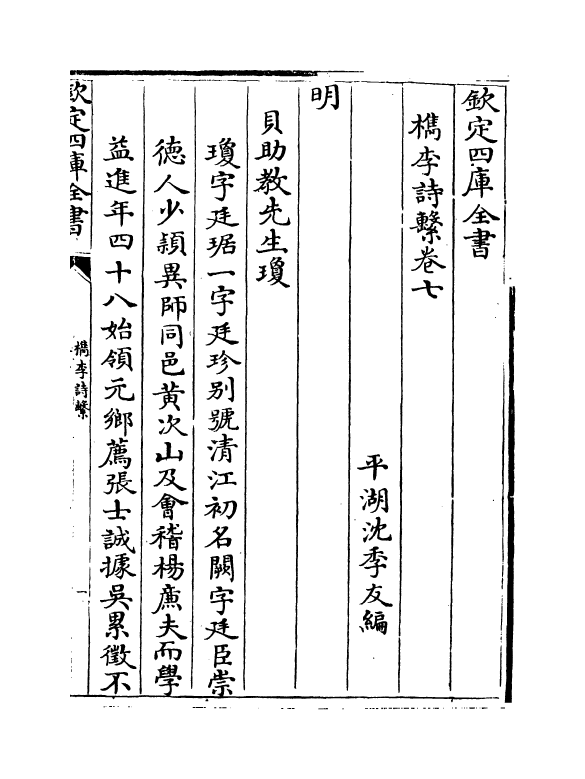 欽定四庫全書
檇李詩繫卷七
平湖沈季友編
明
貝助教先生瓊
瓊字廷琚一字廷珍别號清江初名闕字廷臣崇
徳人少頴異師同邑黄次山及會稽楊㢘夫而學
益進年四十八始領元鄉薦張士誠據吳累徵不
欽定四庫全書
檇李詩繫
一